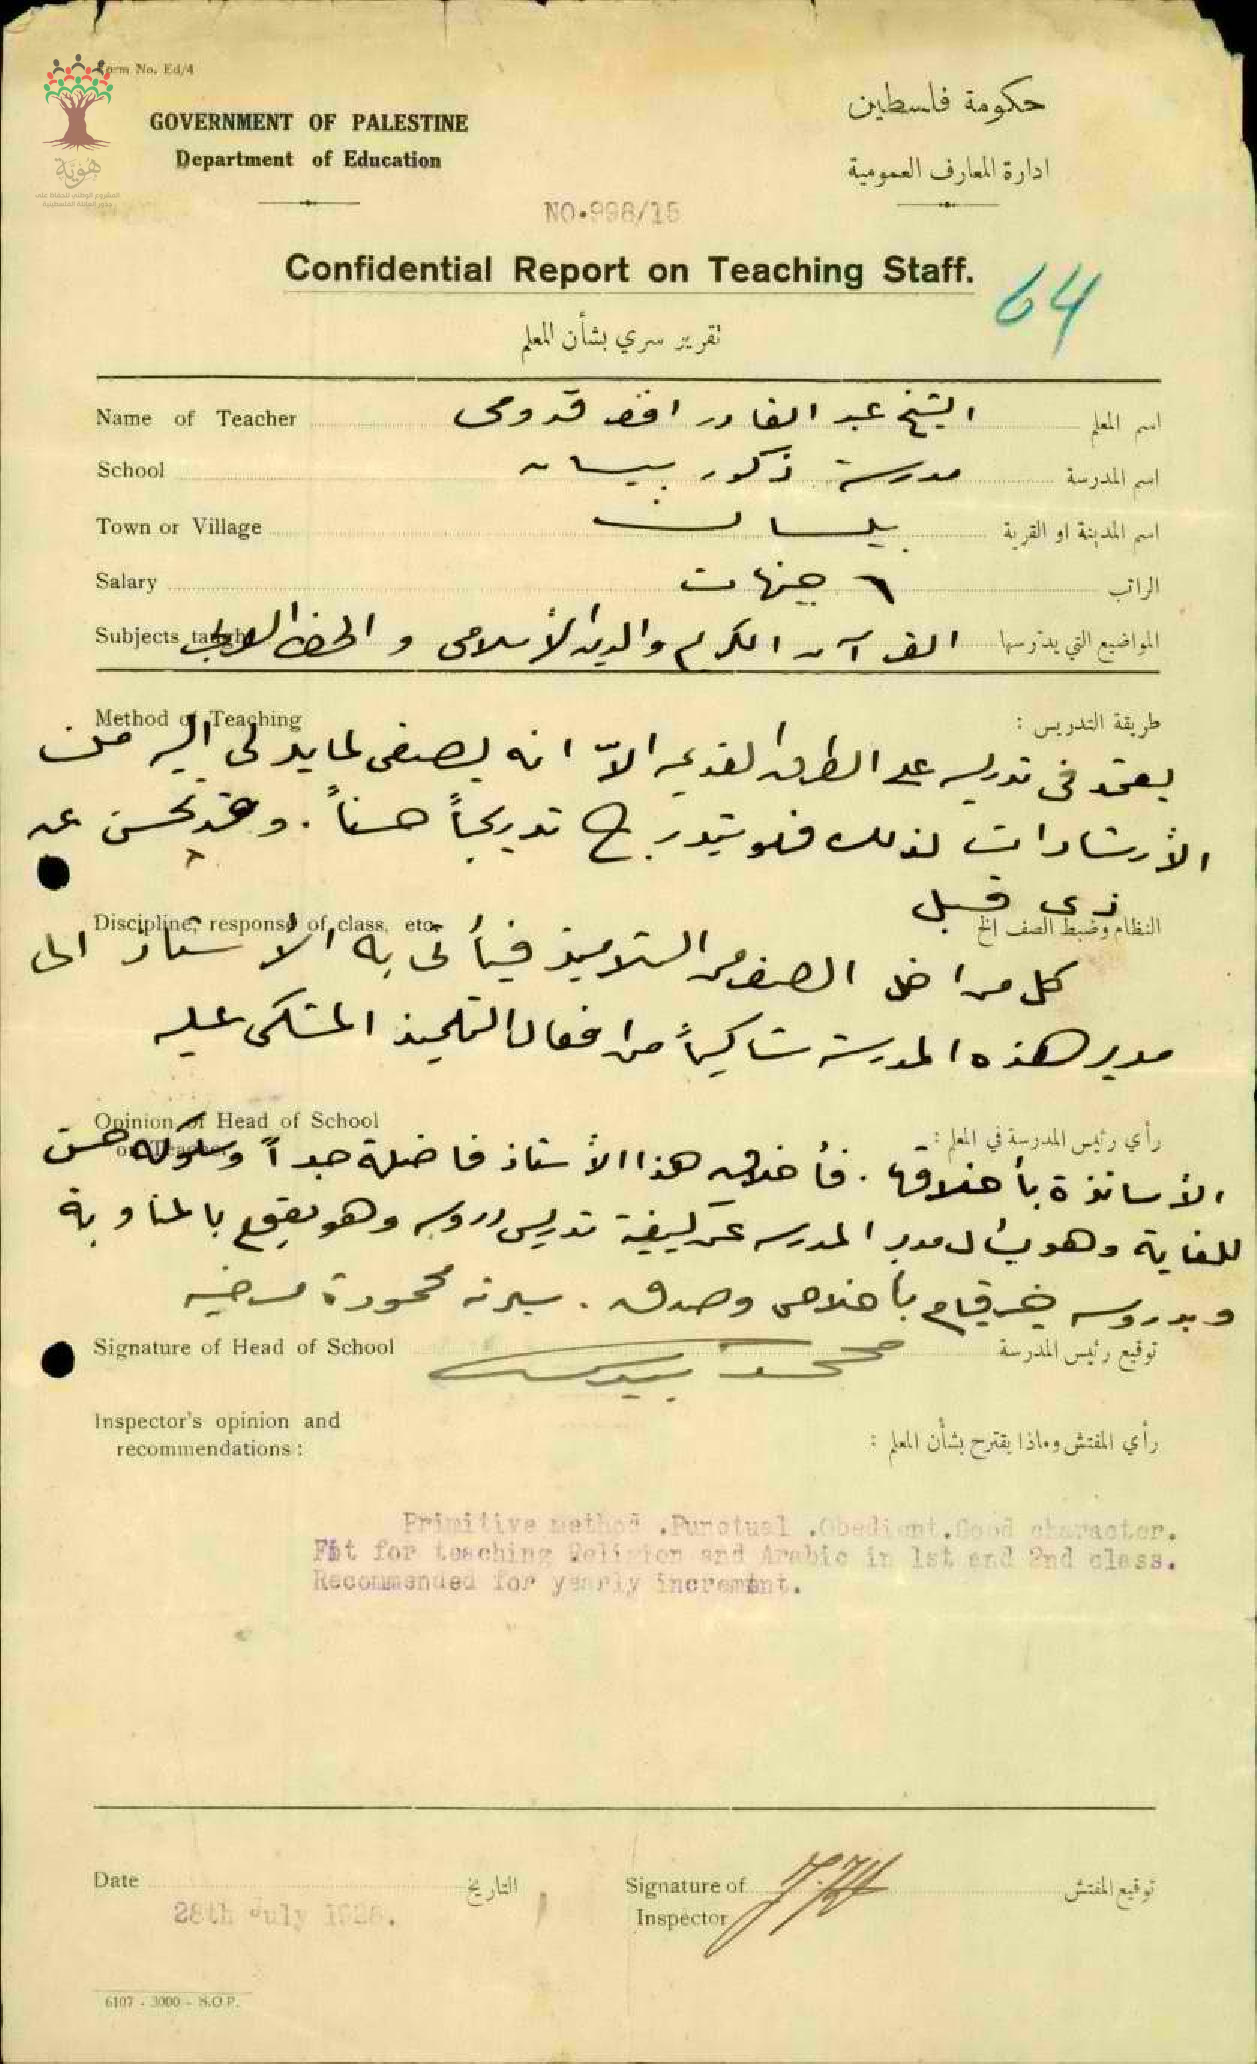 Form No. Ed/4
هوية
المشروع الوطني للحفاظ على
جذور العائلة الفلسطينية
GOVERNMENT OF PALESTINE
Department of Education
حكومة فلسطين
ادارة المعارف العمومية
NO.998/15
Confidential Report on Teaching Staff.
64
تقرير سري بشأن المعلم
Name of Teacher الشيخ عبد القادر افندي قدومى اسم المعلم
School مدرسة ذكور بيسان اسم المدرسة
Town or Village بيسان اسم المدينة او القرية
Salary ٦ جنيهات الراتب
Subjects taught القرآن الكريم والدين الأسلامى و الخط العربي المواضيع التي يدرسها
Method of Teaching طريقة التدريس :
يعتمد فى تدريسه على الطرق القديمه الاّ انه يصغى لما يدلى اليه من
الأرشادات لذلك فهو يتدرج تدريجاً حسناً. وقد تحسن عن
ذى قبل
Discipline, response of class, etc. النظام وضبط الصف الخ
كل من اخل الصف من التلاميذ فيأتى به الأستاذ الى
مدير هذه المدرسة شاكياً من افعال التلميذ المشتكى عليه
Opinion of Head of School
on Teacher رأي رئيس المدرسة في المعلم :
الأساتذة بأخلاقها. فأخلاق هذا الأستاذ فاضلة جداً وسلوكه حسن
للغاية وهو يسأل مدير المدرسه عن كيفية تدريس دروسه وهو يقوم بالمناوبة
وبدروسه خير قيام بأخلاص وصدق. سيرته محمودة مرضيه
Signature of Head of School محمد توقيع رئيس المدرسة
Inspector's opinion and
recommendations :
رأي المفتش وماذا يقترح بشأن المعلم :
Primitive method .Punctual .Obedient.Good character.
Fit for teaching Religion and Arabic in 1st and 2nd class.
Recommended for yearly increment.
Date التاريخ
28th July 1926.
Signature of
Inspector
توقيع المفتش
6107 - 3000 - S.O.P.